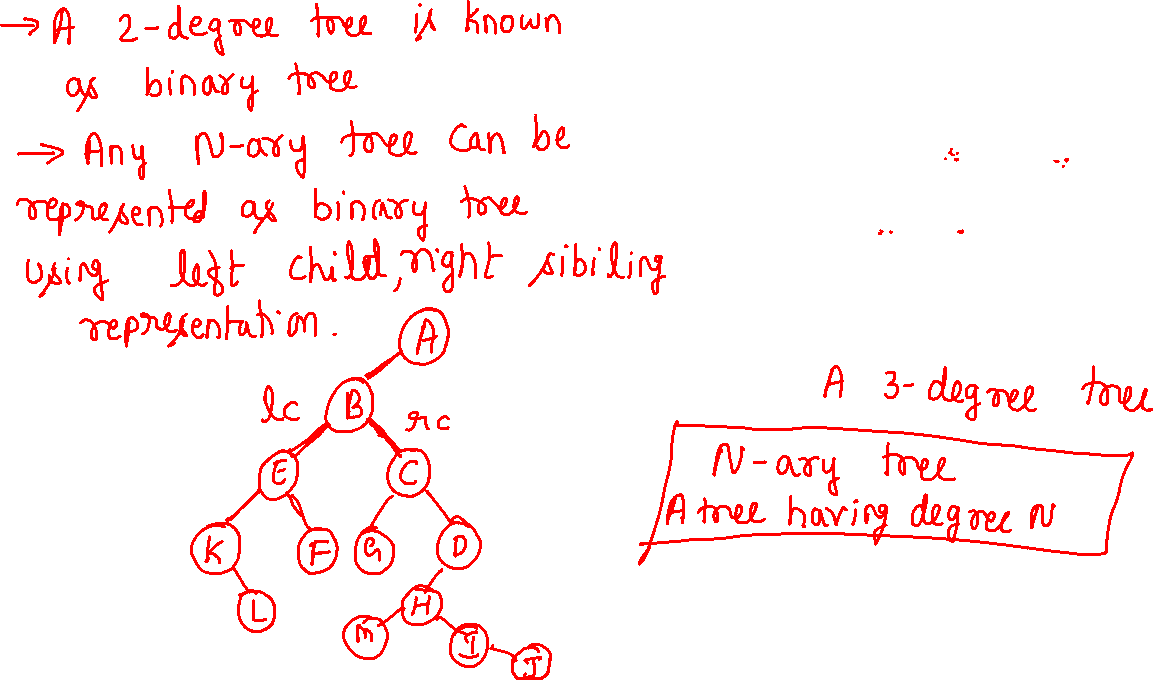 → A 2-degree tree is known
as binary tree
→ Any N-ary tree can be
represented as binary tree
using left child, right sibiling
representation.
A
lc B rc
E C
K F G D
L M H I J
A 3-degree tree
N-ary tree
A tree having degree N